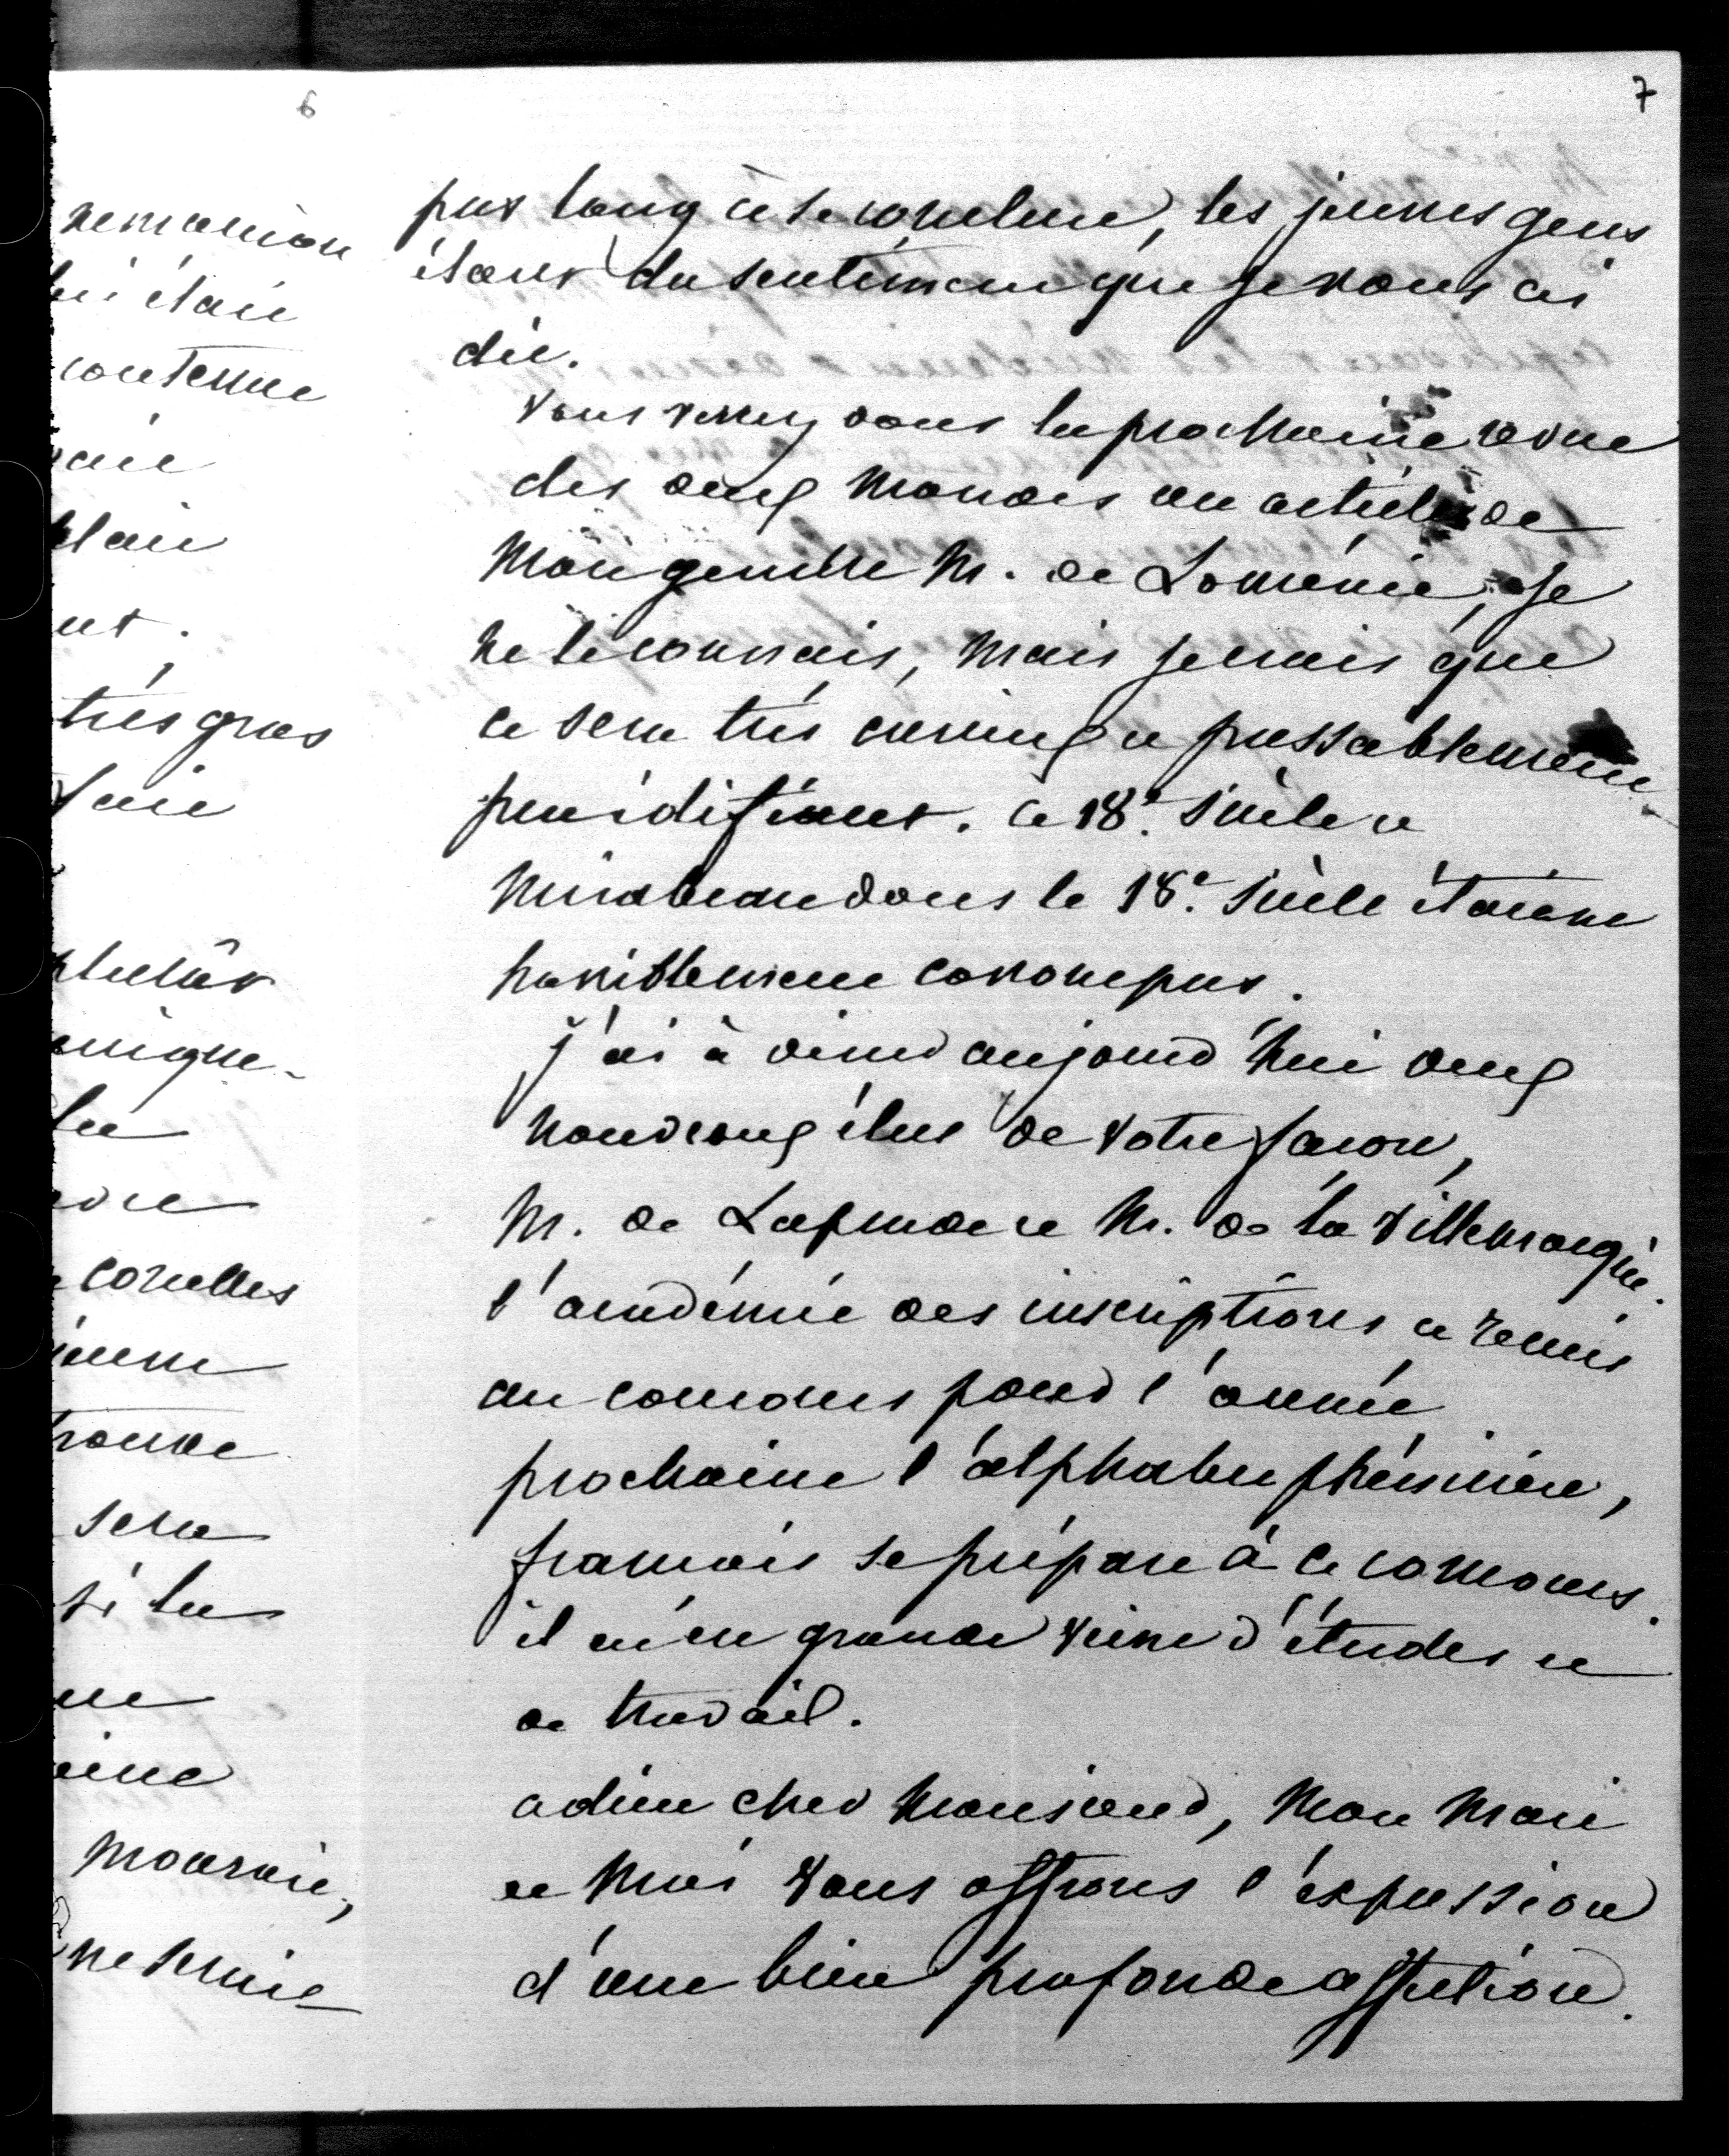 6
remarion
lui était
contenue
vait
plait
ent.
très gros
fait
plutôt
unique-
la
vre
corelles
ienne
trouve
sera
si la
mourait,
ne serait
7
pas long à se conclure, les jeunes gens
étant du sentiment que je vous ai
dit.
vous verrez dans la prochaine revue
des deux mondes un article de
mon gendre M. de Loménie, je
ne le connais, mais je sais que
ce sera très curieux et passablement
peu édifiant. le 18e. siècle et
mirabeau dans le 18e. siècle étaient
horriblement corrompus.
j'ai à diner aujourd'hui deux
nouveaux élus de votre façon,
M. de Laprade et M. de la Villemarqué.
l'académie des inscriptions a remis
au concours pour l'année
prochaine l'alphabet phénicien,
françois se prépare à ce concours.
il est en grande veine d'études et
de travail.
adieu cher Monsieur, Mon Mari
et Moi vous offrons l'expression
d'une bien profonde affection.